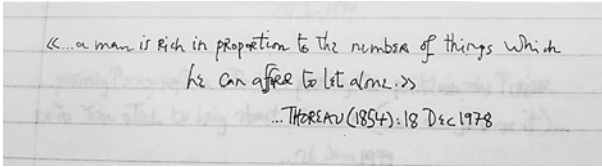 «...a man is rich in proportion to the number of things which
he can affoRd to let alone.»
...THOREAU (1854): 18 Dec 1978